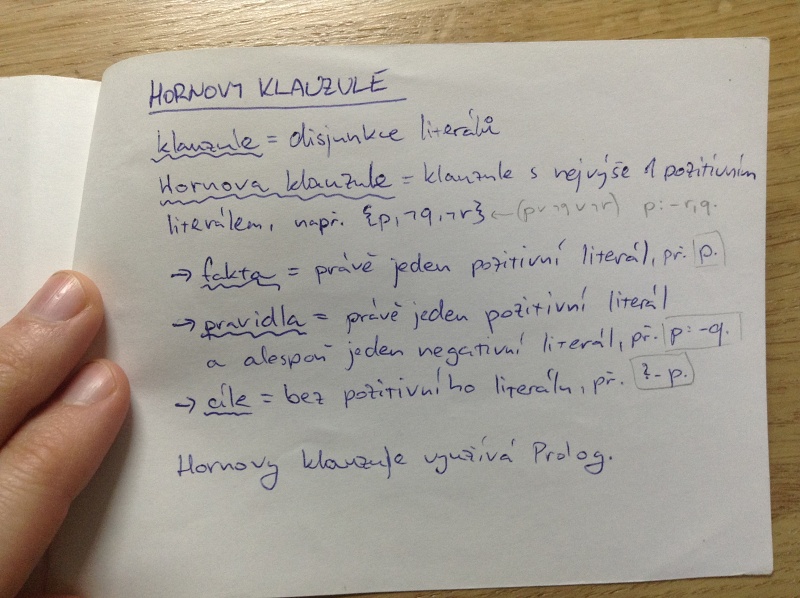 HORNOVY KLAUZULE
klauzule = disjunkce literálů
Hornova klauzule = klauzule s nejvýše 1 pozitivním
literálem, např. {p, ¬q, ¬r} ← (p ∨ ¬q ∨ ¬r) p:-r,q.
→ fakta = právě jeden pozitivní literál, př. p.
→ pravidla = právě jeden pozitivní literál
a alespoň jeden negativní literál, př. p:-q.
→ cíle = bez pozitivního literálu, př. ?-p.
Hornovy klauzule využívá Prolog.